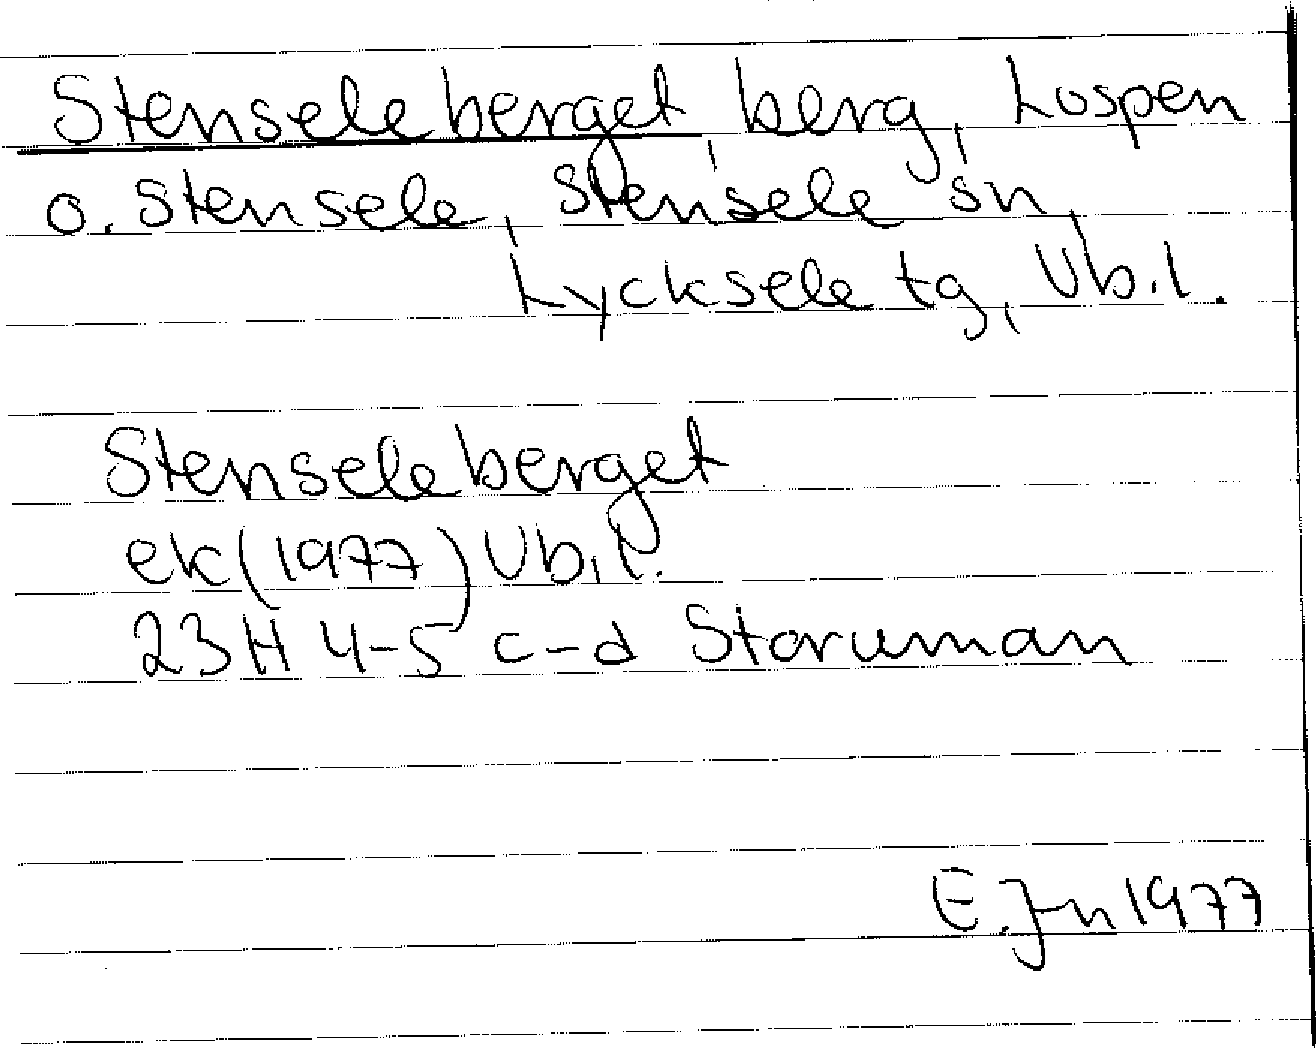 Stenseleberget berg, Lospen
o. Stensele, Stensele sn,
Lycksele tg, Vb.l.
Stenseleberget
ek(1977) Vb.l.
23H 4-5 c-d Storuman
E.Jn 1977